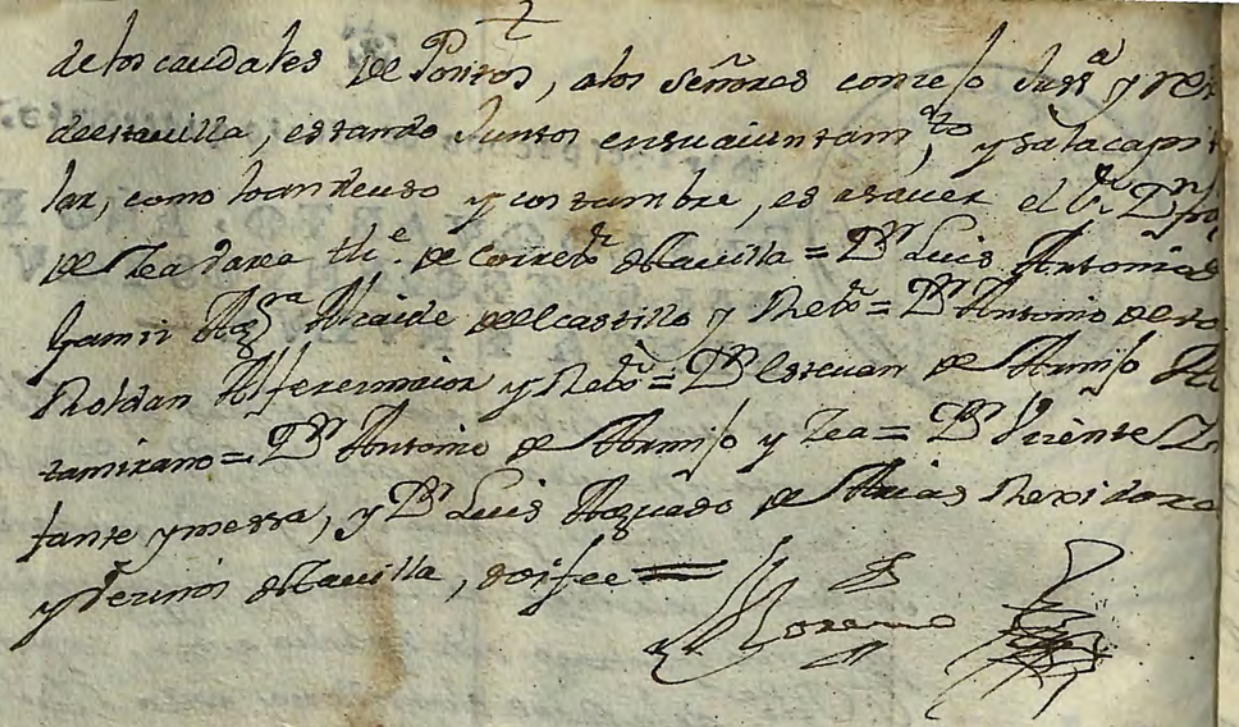 de los caudales de Positos, a los Señores consejo Justª y
de esta uilla, estando Juntos en su aiuntamto, y sala capi
lar, como lo an de uso y costumbre, es a sauer el Sr. Dn
de Zea darea the. de Correxr desta uilla = Dn Luis Antonio
Alcaide del castillo y Rexr = Dn Antonio de
Roldan Alferez maior y Rexr = Dn Esteuan de Armijo
tamirano = Dn Antonio de Armijo y Zea = Dn Vicente
fante y messa, y Dn Luis Aguado de Arias Rexidores
y Vecinos desta uilla, doi fee =
Moreno